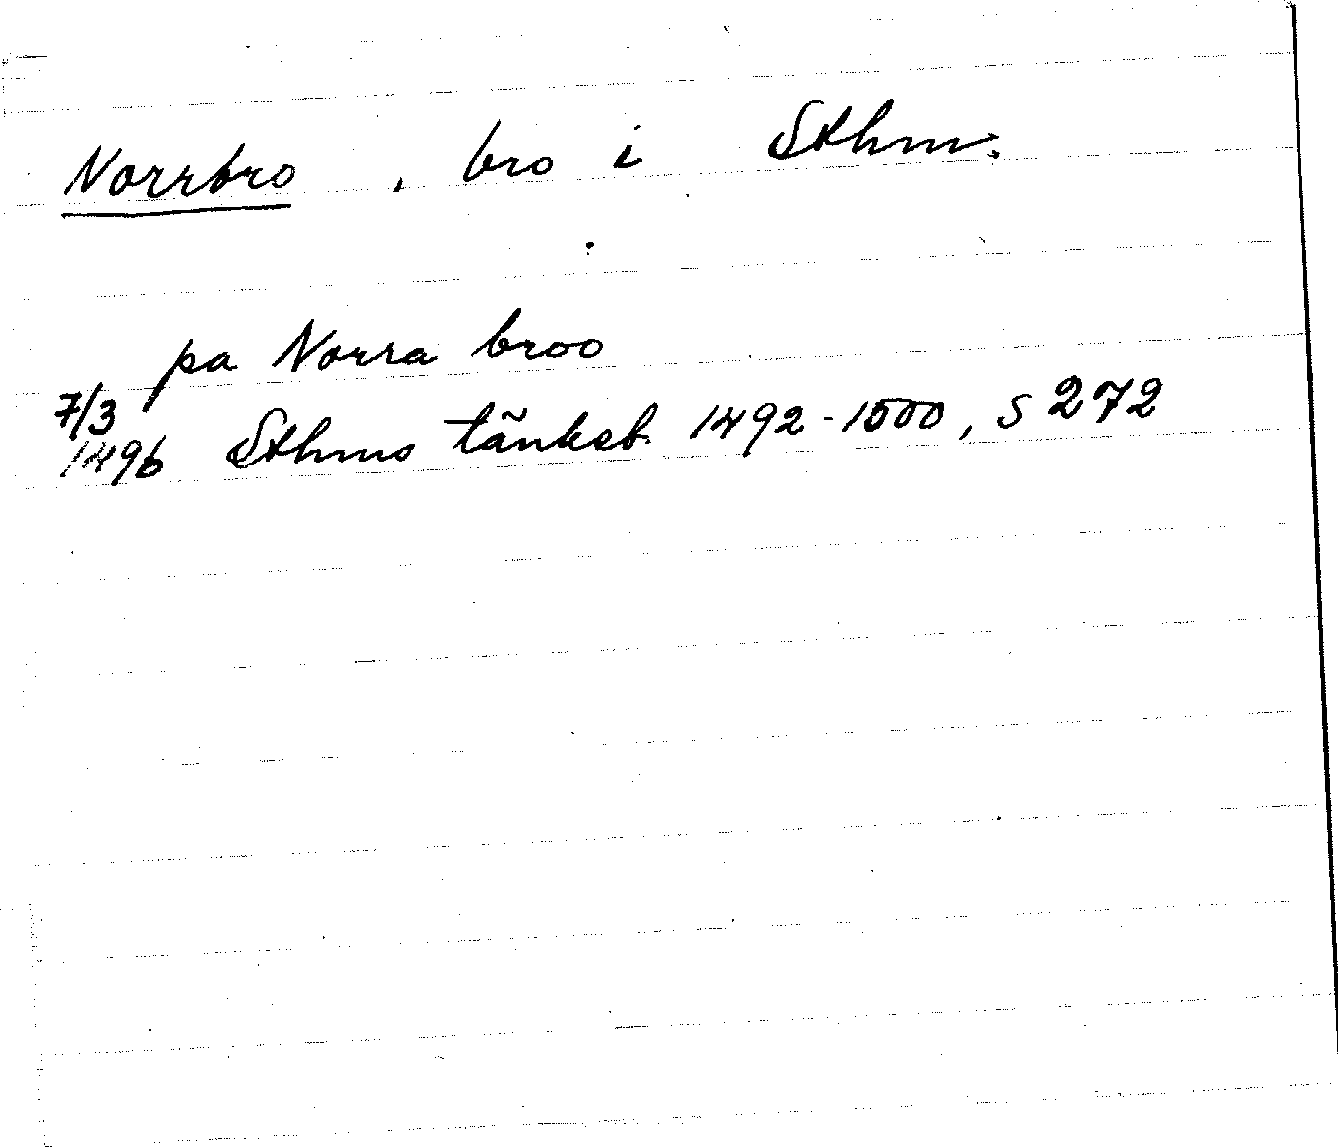 Norrbro, bro i Sthm.
pa Norra broo
7/3
1496 Sthms tänkeb. 1492-1500, s 272